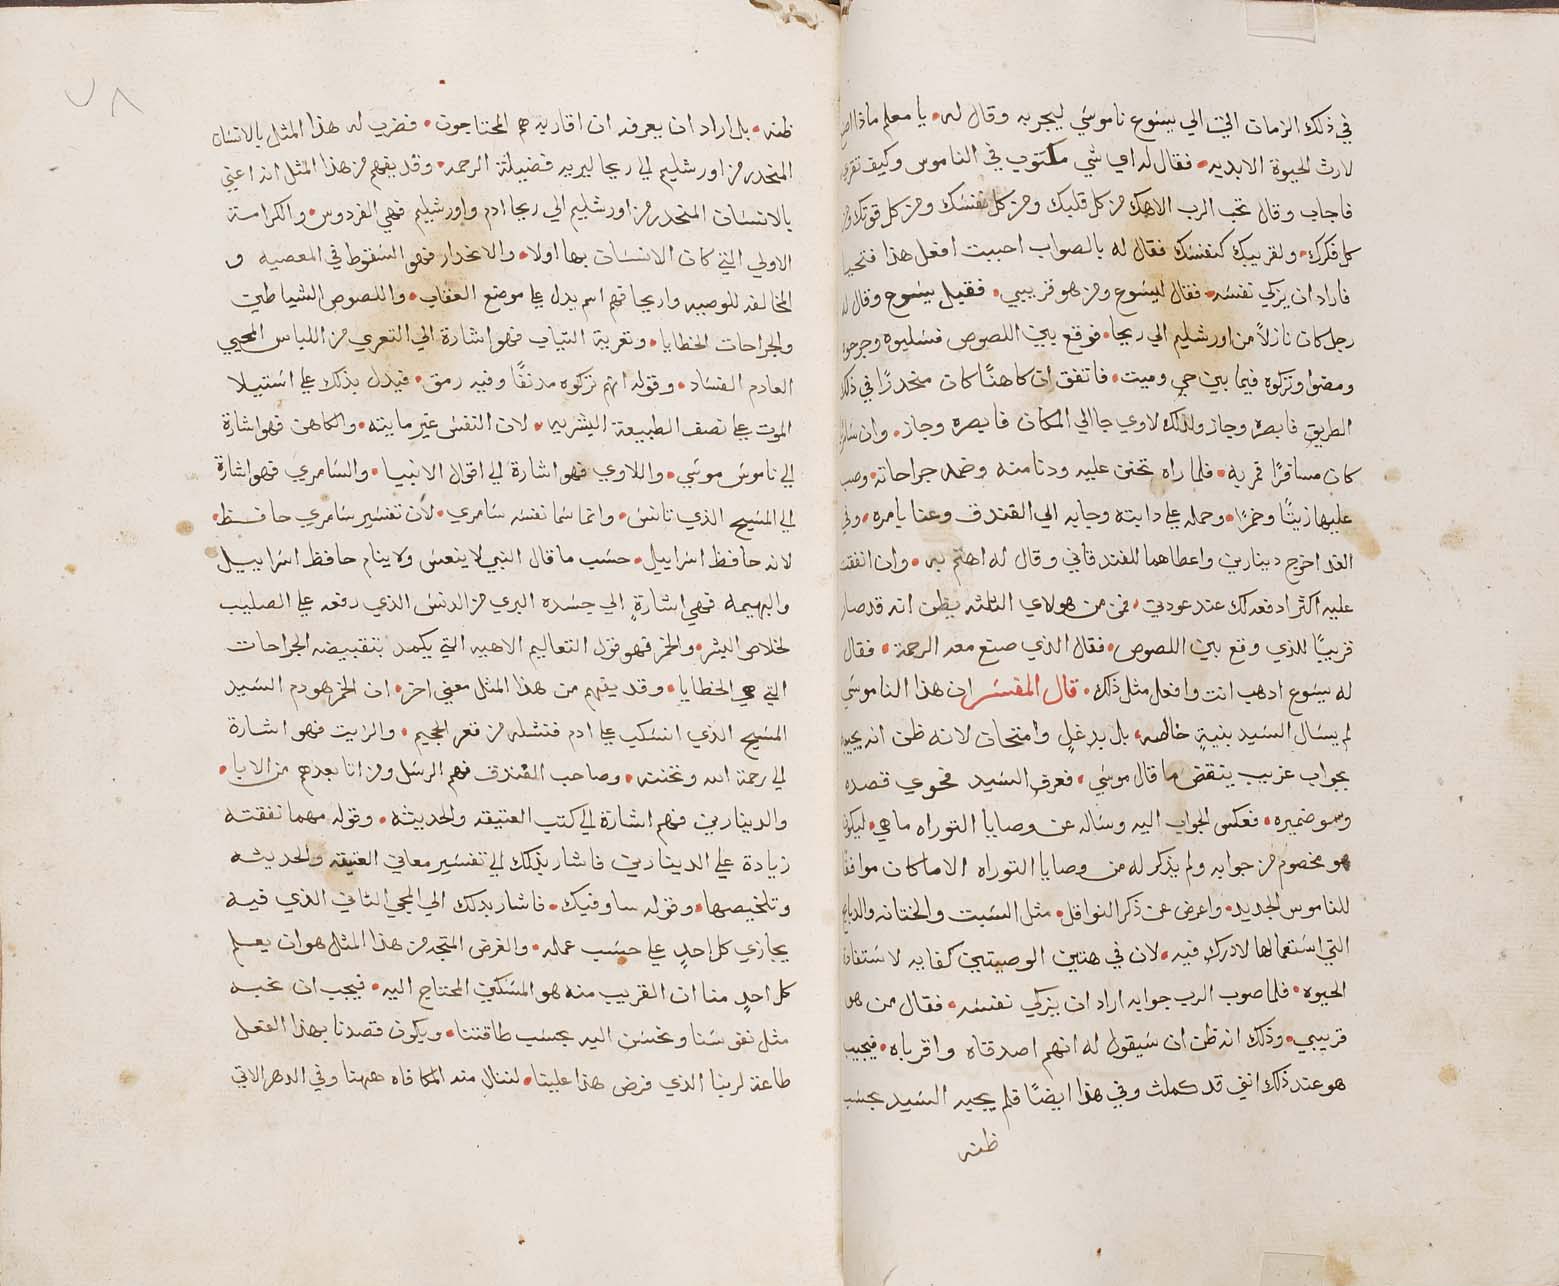 في ذلك الزمان اتى الي يسوع ناموسي ليجربه وقال له • يا معلم ماذا
لارث الحيوة الابديه • فقال له اي شي مكتوب في الناموس وكيف تقرا
فاجاب وقال تحب الرب الاهك من كل قلبك ومن كل نفسك ومن كل قوتك ومن
كل فكرك • ولقريبك كنفسك فقال له بالصواب اجبت افعل هذا فتحيا
فاراد ان يزكي نفسه • فقال ليسوع ومن هو قريبي • فقيل يسوع وقال له
رجل كان نازلاً من اورشليم الي ريحا • فوقع بين اللصوص فسلبوه وجرحوه
ومضوا وتركوه فيما بين حي وميت • فاتفق ان كاهنًا كان منحدرًا في ذلك
الطريق فابصره وجاز وكذلك لاوي جا الي المكان فابصره وجاز • وان
كان مسافرًا فمر به • فلما راه تحنن عليه ودنا منه وضمد جراحاته • وصب
عليها زيتًا وخمرًا • وحمله علي دابته وجابه الي الفندق وعنا بامره • وفي
الغد اخرج دينارين واعطاهما للفندقاني وقال له اهتم به • وان انفقت
عليه اكثر ادفعه لك عند عودتي • فمن من هولاي الثلثه يظن انه قد صار
قريبًا للذي وقع بين اللصوص • فقال الذي صنع معه الرحمة • فقال
له يسوع اذهب انت وافعل مثل ذلك • قال المفسر ان هذا الناموسي
لم يسال السيد بنيةٍ خالصه • بل بدغلٍ وامتحان لانه ظن انه يجيبه
بجواب غريب ينقض ما قال موسي • فعرف السيد فحوي قصده
وسو ضميره • فعكس الجواب اليه وساله عن وصايا التوراه ما هي • ليكون
هو مخصوم من جوابه ولم يذكر له من وصايا التوراه الا ما كان موافقا
للناموس الجديد • واعرض عن ذكر النوافل • مثل السبت والختانه والذبايح
التي استعمالها لا درك فيه • لان في هتين الوصيتين كفايه لاستفادة
الحيوه • فلما صوب الرب جوابه اراد ان يزكي نفسه • فقال من هو
قريبي • وذلك انه ظن ان سيقول له انهم اصدقاه واقرباه • فيجيب
هو عند ذلك انني قد كملت وفي هذا ايضًا فلم يجيبه السيد بحسب
ظنه
ظنه • بل اراد ان يعرفه ان اقاربه هم المحتاجون • فضرب له هذا المثل بالانسان
المنحدر من اورشليم الي ريحا ليريه فضيلة الرحمه • وقد يفهم من هذا المثل انه اعني
بالانسان المنحدر من اورشليم الي ريحا ادم واورشليم فهي الفردوس • والكرامة
الاولي التي كان الانسان بها اولا • والانحدار فهو السقوط في المعصيه و
المخالفه للوصيه واريحا فهم اسم يدل علي موضع العقاب • واللصوص الشياطين
والجراحات الخطايا • وتعرية الثياب فهو اشارة الي التعري من اللباس المحيي
العادم الفساد • وقوله انهم تركوه مدنفًا وفيه رمق • فيدل بذلك علي استيلا
الموت علي نصف الطبيعة البشريه • لان النفس غير مايته • والكاهن فهو اشارة
الي ناموس موسي • واللاوي فهو اشارة الي اقوال الانبيا • والسامري فهو اشارة
الي المسيح الذي تانس • وانما سما نفسه سامري • لان تفسير سامري حافظ •
لانه حافظ اسراييل • حسب ما قال النبي لا ينعس ولا ينام حافظ اسراييل
والبهيمه فهي اشارةٍ الي جسده البري من الدنس الذي رفعه علي الصليب
لخلاص البشر • والخمر فهو قول التعاليم الاهيه التي يكمد بتقبيضه الجراحات
التي هي الخطايا • وقد يفهم من هذا المثل معني اخر • ان الخمر هو دم السيد
المسيح الذي انسكب علي ادم فنشله من قعر الجحيم • والزيت فهو اشارة
الي رحمة الله وتحننه • وصاحب الفندق فهم الرسل ومن اتا بعدهم من الابا •
والدينارين فهم اشارة الي كتب العتيقه والحديثه • وقوله مهما نفقته
زيادة علي الدينارين فاشار بذلك الي تفسير معاني العتيقه والحديثه
وتلخيصها • وقوله ساوفيك • فاشار بذلك الي المجي الثاني الذي فيه
يجازي كل احدٍ علي حسب عمله • والغرض المتجه من هذا المثل هو ان يعلم
كل احدٍ منا ان القريب منه هو المسكين المحتاج اليه • فيجب ان نحبه
مثل نفوسنا ونحسن اليه بحسب طاقتنا • ويكون قصدنا بهذا الفعل
طاعة لربنا الذي فرض هذا علينا • لننال منه المكافاه ههنا وفي الدهر الاتي